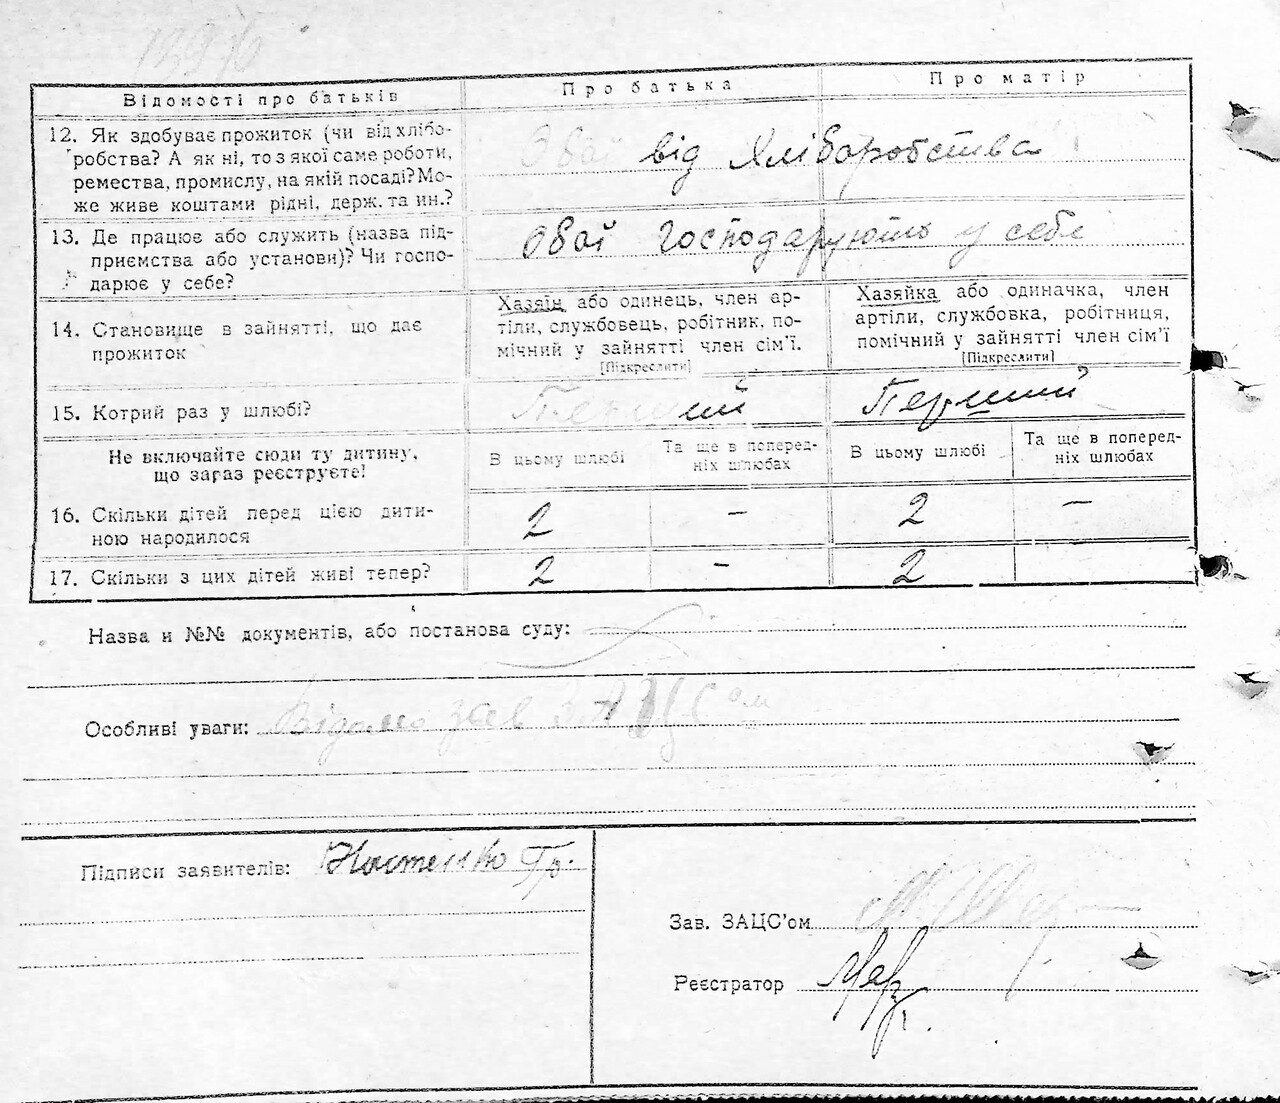 139
Відомості про батьків
Про батька
Про матір
12. Як здобуває прожиток (чи від хлібо-
робства? А як ні, то з якої саме роботи,
ремества, промислу, на якій посаді? Мо-
же живе коштами рідні, держ. та ин.?
Обої від Хліборобства
13. Де працює або служить (назва під-
приємства або установи)? Чи госпо-
дарює у себе?
Обої Господарують у себе
14. Становище в зайнятті, що дає
прожиток
Хазяїн або одинець, член ар-
тіли, службовець, робітник, по-
мічний у зайнятті член сім'ї.
[Підкреслити]
Хазяйка або одиначка, член
артіли, службовка, робітниця,
помічний у зайнятті член сім'ї
[Підкреслити]
15. Котрий раз у шлюбі?
Перший
Перший
Не включайте сюди ту дитину,
що зараз реєструєте!
В цьому шлюбі
Та ще в поперед-
ніх шлюбах
В цьому шлюбі
Та ще в поперед-
ніх шлюбах
16. Скільки дітей перед цією дити-
ною народилося
2 – 2 –
17. Скільки з цих дітей живі тепер?
2 – 2
Назва и №№ документів, або постанова суду:
Особливі уваги: ЗАЦС ом
Підписи заявителів: Костенко Гр.
Зав. ЗАЦС'ом
Реєстратор